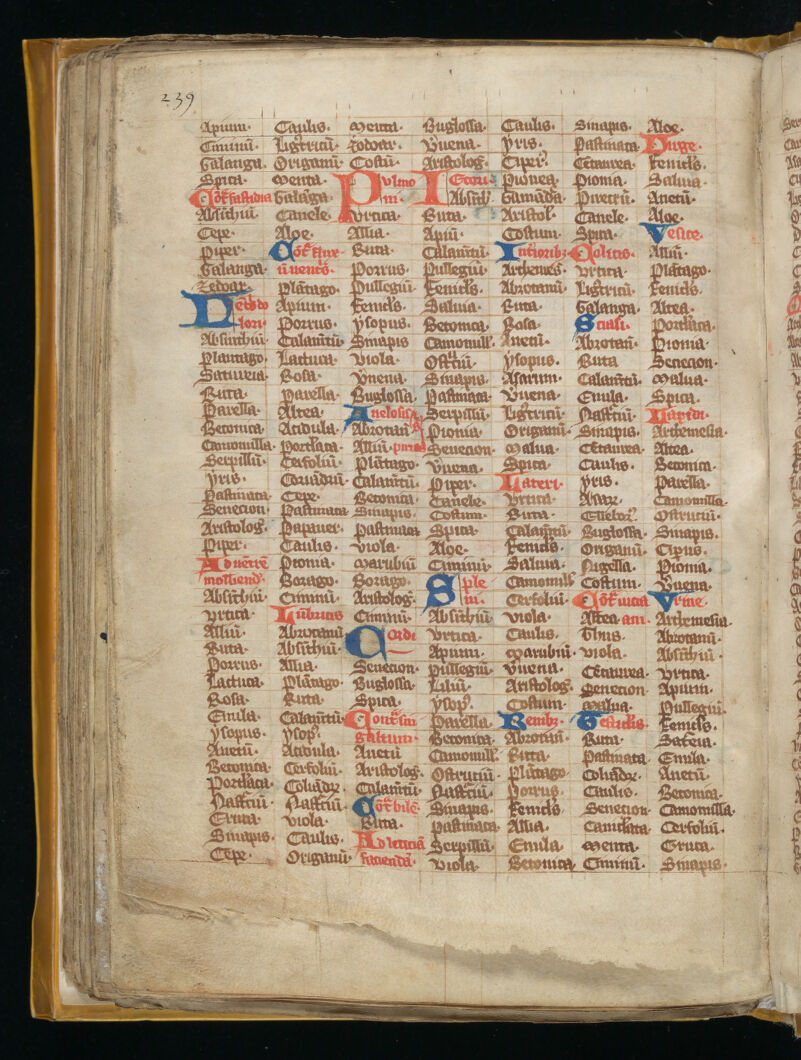 239
Apium.
Ciminū.
Galanga.
Spica.
Cōt̄ fastidia
Absīthiū.
Cepe.
Piper.
Galanga.
Zedoar.
Absinthiū.
Plantago.
Satureia.
Ruta.
Parella.
Betonica.
Camomilla.
Serpillū.
Yris.
Pastinata.
Senecion.
Aristolog.
Piper.
Ad uenerē
Absīthiū.
Vrtica.
Alliū.
Ruta.
Porrus.
Lactuca.
Rosa.
Enula.
Ysopus.
Anetū.
Betonica.
Portlaca.
Nastciū.
Eruca.
Sinapis.
Cepe.
Caulis.
Ligtricū.
Origanū.
Menta.
Galanga.
Canele.
Aloe.
Plātago.
Apium.
Porrus.
Calamtū.
Lactuca.
Rosa.
Parella.
Altea.
Acidula.
Portlata.
Cerfoliū.
Coriādrū.
Cepe.
Pastinaca.
Papauer.
Caulis.
Pionia.
Borago.
Ciminū.
Lūbricis
Abrotanū
Absīthiū.
Allia.
Plātago.
Ruta.
Calamtū.
Ysop.
Acidula.
Cerfoliū.
Coliādr
Nastciū.
Viola.
Caulis.
Origanū.
Menta.
Zodoar.
Costū.
Pulmo
ni.
Vrtica.
Allia.
Ruta.
Porrus.
Pullegiū.
Fenicls.
Ysopus.
Sinapis
Viola.
Vnena.
Buglossa.
Anelosis
Abrotan
Alliū.
Plātago.
Calamtū.
Betonica.
Sinapis.
Pastinaca
Viola.
Marubiū
Borago.
Aristolog.
Ciminū.
Cordi
Senecion.
Buglossa.
Spica.
Anetū
Aristolog.
Calamtū.
Cōt̄ bilē
Ruta.
Ad leticiā
faciendā.
Buglossa.
Vuena.
Aristolog.
Iecori
Absīth.
Ruta.
Apiū.
Calamtū.
Pullegiū.
Fenicls.
Saluia.
Betonica.
Camomill.
Sinapis.
Pastinaca.
Serpillū.
Pionia.
Senecion.
Vuena.
Piper.
Canele.
Costum.
Spica.
Aloe.
Ciminū.
Sple
ni.
Absīthiū.
Vrtica.
Apium.
Pullegiū.
Liliū.
Ysop.
Parella.
Betonica.
Camomill.
Ostrutiū.
Nastciū.
Sinapis.
Pastinaca
Serpillū.
Viola.
Caulis.
Yris.
Ciper.
Pionea.
Aristol.
Costum.
Intiorib
Arthemes.
Abrotanū.
Ruta.
Rosa.
Anetū.
Ysopus.
Asarum.
Vuena.
Ligtricū.
Origanū.
Malua.
Spica.
Lateri.
Vrtica.
Ruta.
Calamtū.
Fenicls.
Saluia.
Camomill
Cerfoliū.
Viola.
Caulis.
Marubiū.
Vuena.
Aristolog.
Costum.
Renib
Abrotan.
Ruta.
Plātago
Porrus.
Fenicls.
Allia.
Enula.
Betonica
Sinapis.
Pastinata
Cētaurea.
Pionia.
Piretrū.
Canele.
Spica.
Colicis.
Vrtica.
Ligtricū.
Galanga.
Sciasi.
Abrotan.
Ruta
Calamtū.
Enula.
Nastciū.
Sinapis.
Cētaurea.
Caulis.
Yris.
Buglossa.
Origanū.
Nigella.
Costum.
Altea.
Thus.
Viola.
Cētaurea.
Senecion
Malua.
Ruta.
Pastinaca
Coliādr.
Caulis.
Senecion.
Menta.
Ciminū.
Aloe.
Purge.
Fenicls.
Saluia.
Anetū.
Aloe.
Vesice.
Alliū.
Plātago.
Fenicls.
Altea.
Portlaca.
Pionia.
Senecion.
Malua.
Spica.
Arthemesia.
Altea.
Betonica.
Parella.
Camomilla.
Ostrutiū.
Sinapis.
Cipus.
Pionia.
Vuena.
Vrine.
Arthemesia.
Abrotanū.
Absīthiū.
Vrtica.
Apium.
Pullegiū.
Fenicls.
Enula.
Anetū.
Betonica.
Camomilla.
Cerfoliū.
Eruca.
Sinapis.